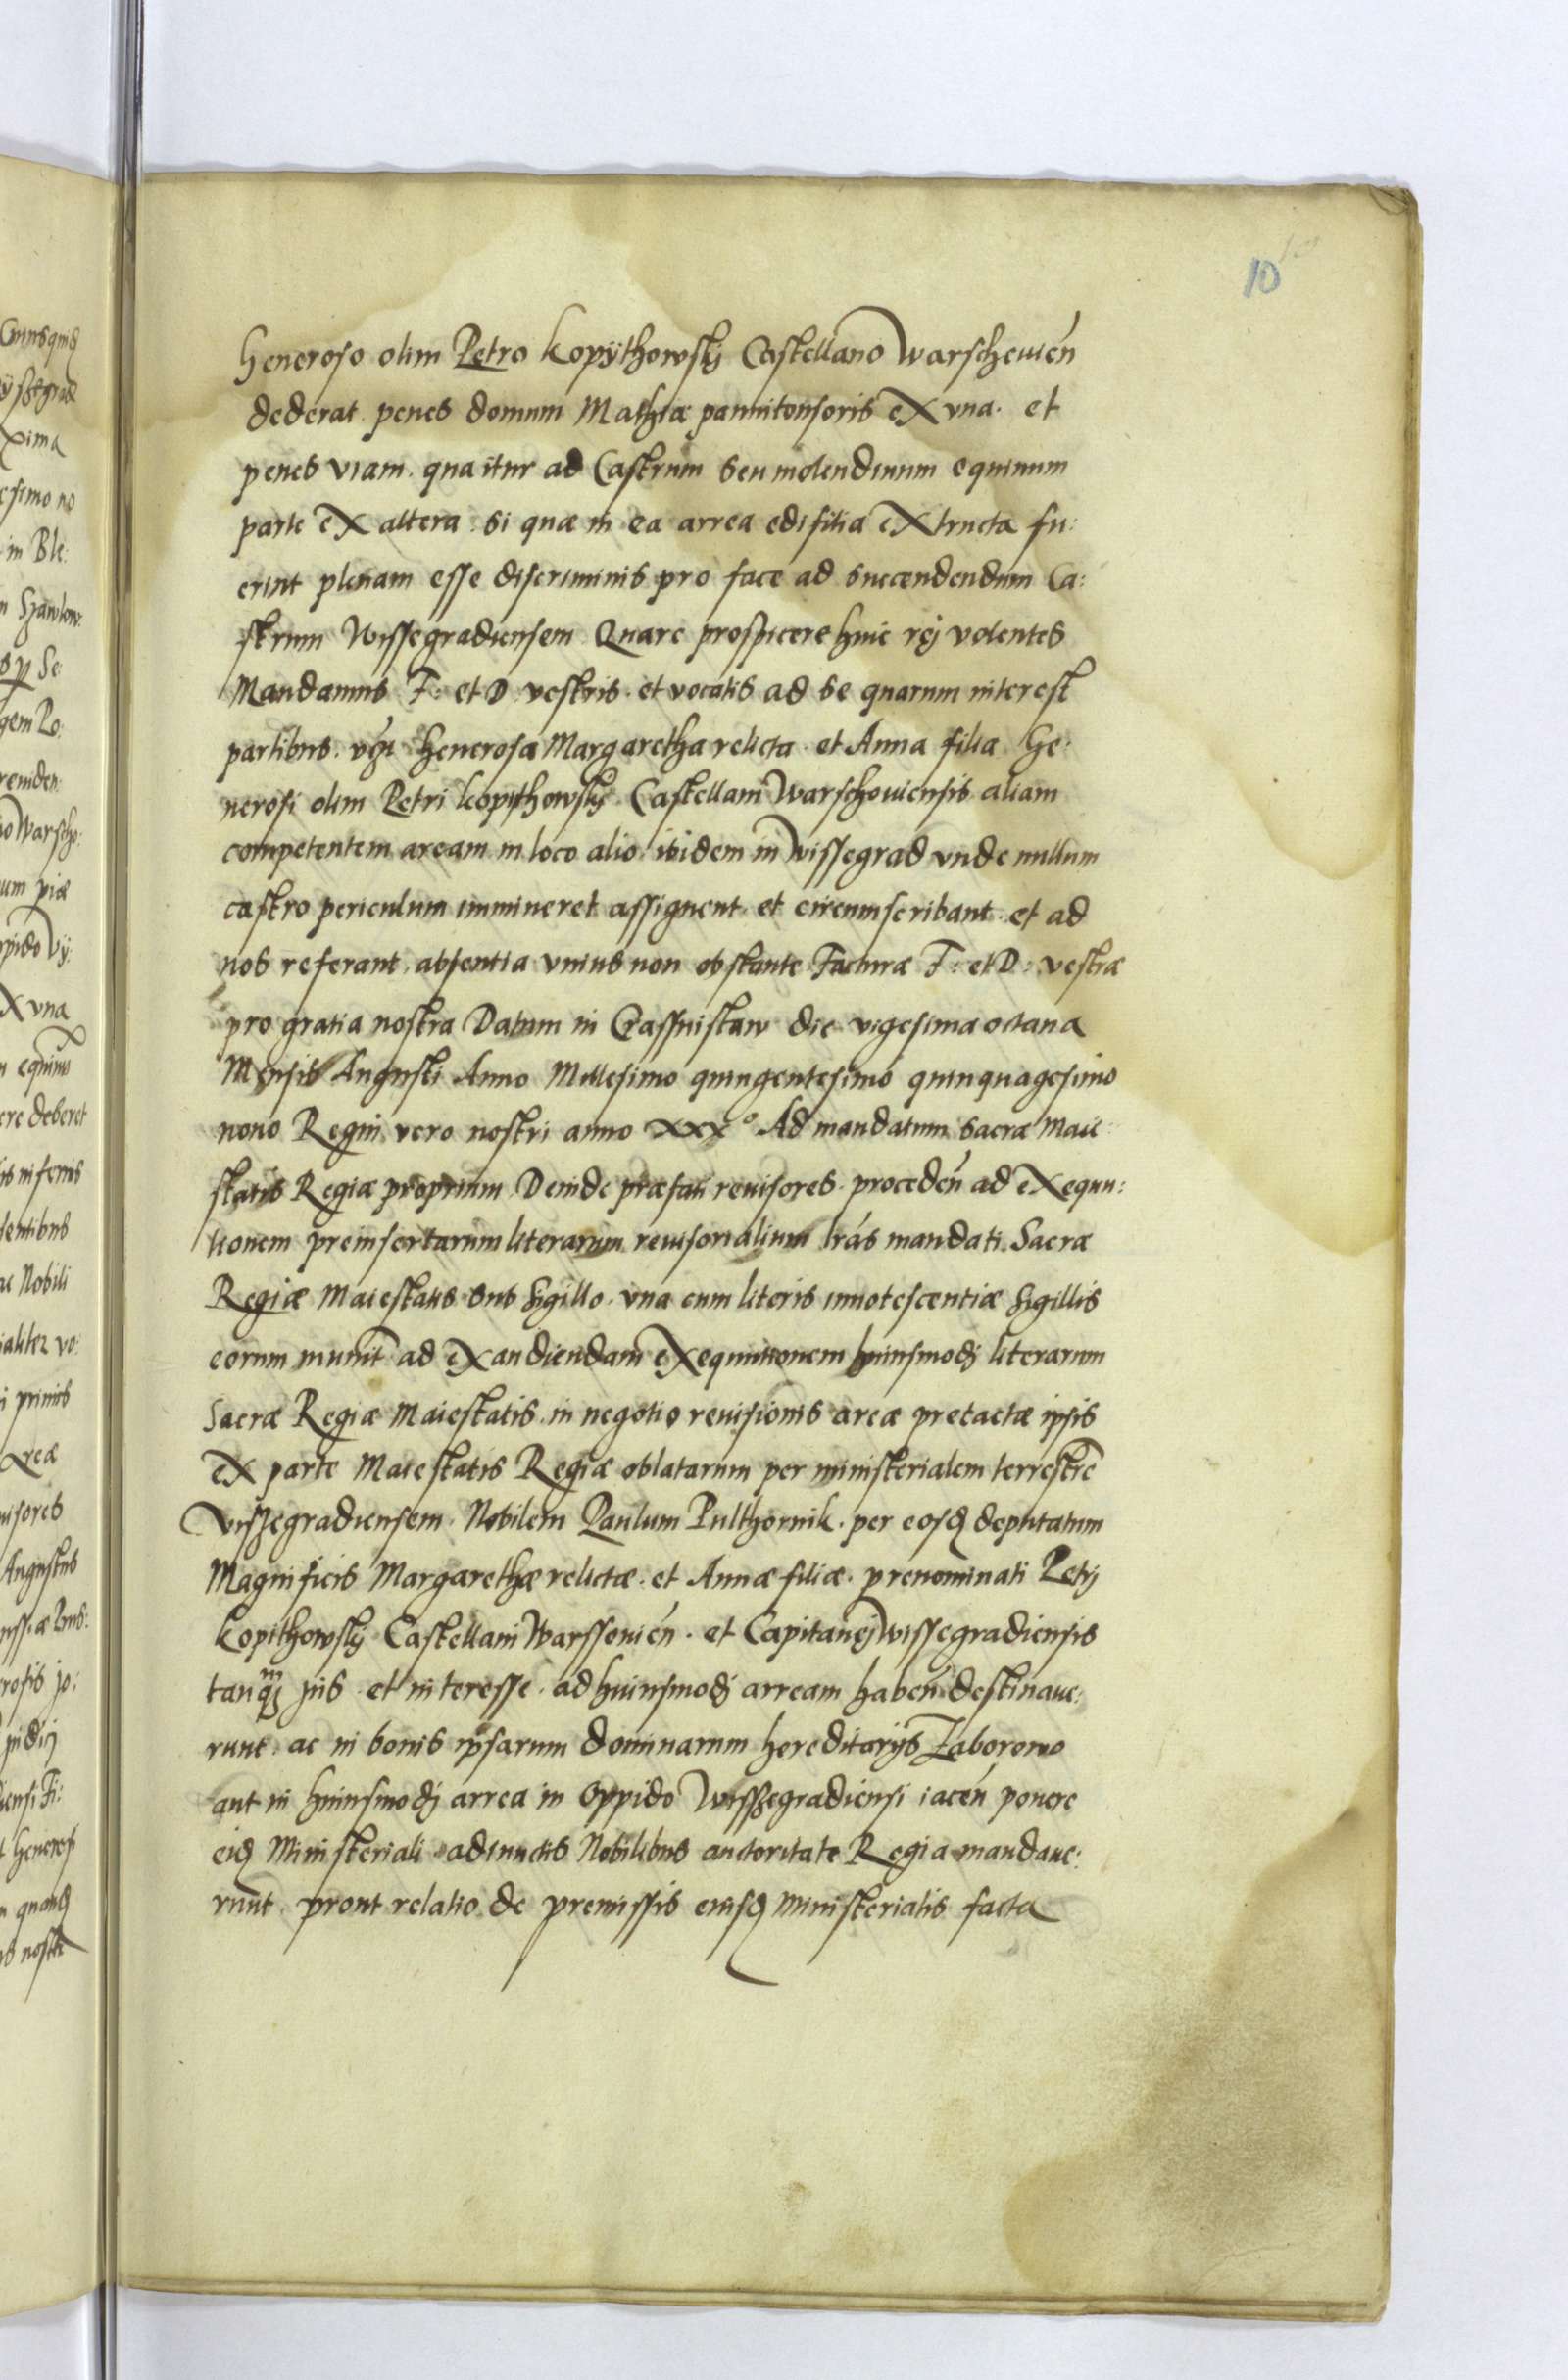 10
Generoso olim Petro Kopÿthowskj Castellano Warscheuien̄
dederat penes domum Mathiæ pannitonsoris ex vna et
penes viam qua itur ad Castrum seu molendinum equinum
parte ex altera si quæ in ea arrea edifitia extructa fu:
erint plenam esse discriminis pro face ad succendendum Ca:
strum Wissegradiensem Quare prospicere huic rej volentes
Mandamus F: et D vestris et vocatis ad se quarum interest
partibus Generosæ Margaretha relicta et Anna filia Ge:
nerosi olim Petri Kopithowskj Castellani Warschouiensis aliam
competentem aream in loco alio ibidem in Wissegrad vnde nullum
castro periculum immineret assignent et circumscribant et ad
nos referant absentia vnius non obstante Facturæ F: et D: vestræ
pro gratia nostra Datum in Crassnistaw die vigesima octaua
Mensis Augusti Anno Millesimo quingentesimo quinquagesimo
nono Regni vero nostri anno xxx° Ad mandatum sacræ Maie:
statis Regiæ proprium Deinde præfati reuisores proceden̄ ad exequu:
tionem preinsertarum literarum reuisorialium lr̄as mandati Sacræ
Regiæ Maiestatis sub sigillo vna cum literis innotescentiæ sigillis
eorum munit ad exaudiendam exequutionem huiusmodj literarum
Sacræ Regiæ Maiestatis in negotio reuisionis areæ pretactæ ipsis
ex parte Maiestatis Regiæ oblatarum per ministerialem terrestrē
Viszegradiensem Nobilem Paulum Pulthornik per eosq deputatum
Magnificis Margarethæ relictæ et Annæ filiæ prenominati Petrj
Kopithowskj Castellani Warssouien̄ et Capitanej Wissegradiensis
tanqꝫ m jus et interesse ad huiusmodj arream haben̄ destinaue:
runt ac in bonis ipsarum dominarum hereditarÿs Zaborowo
aut in huiusmodj arrea in Oppido Wiszegradiensi iacen̄ ponere
eiq Ministeriali adiunctis Nobilibus auctoritate Regia mandaue:
runt prout relatio de premissis eiusq Ministerialis facta